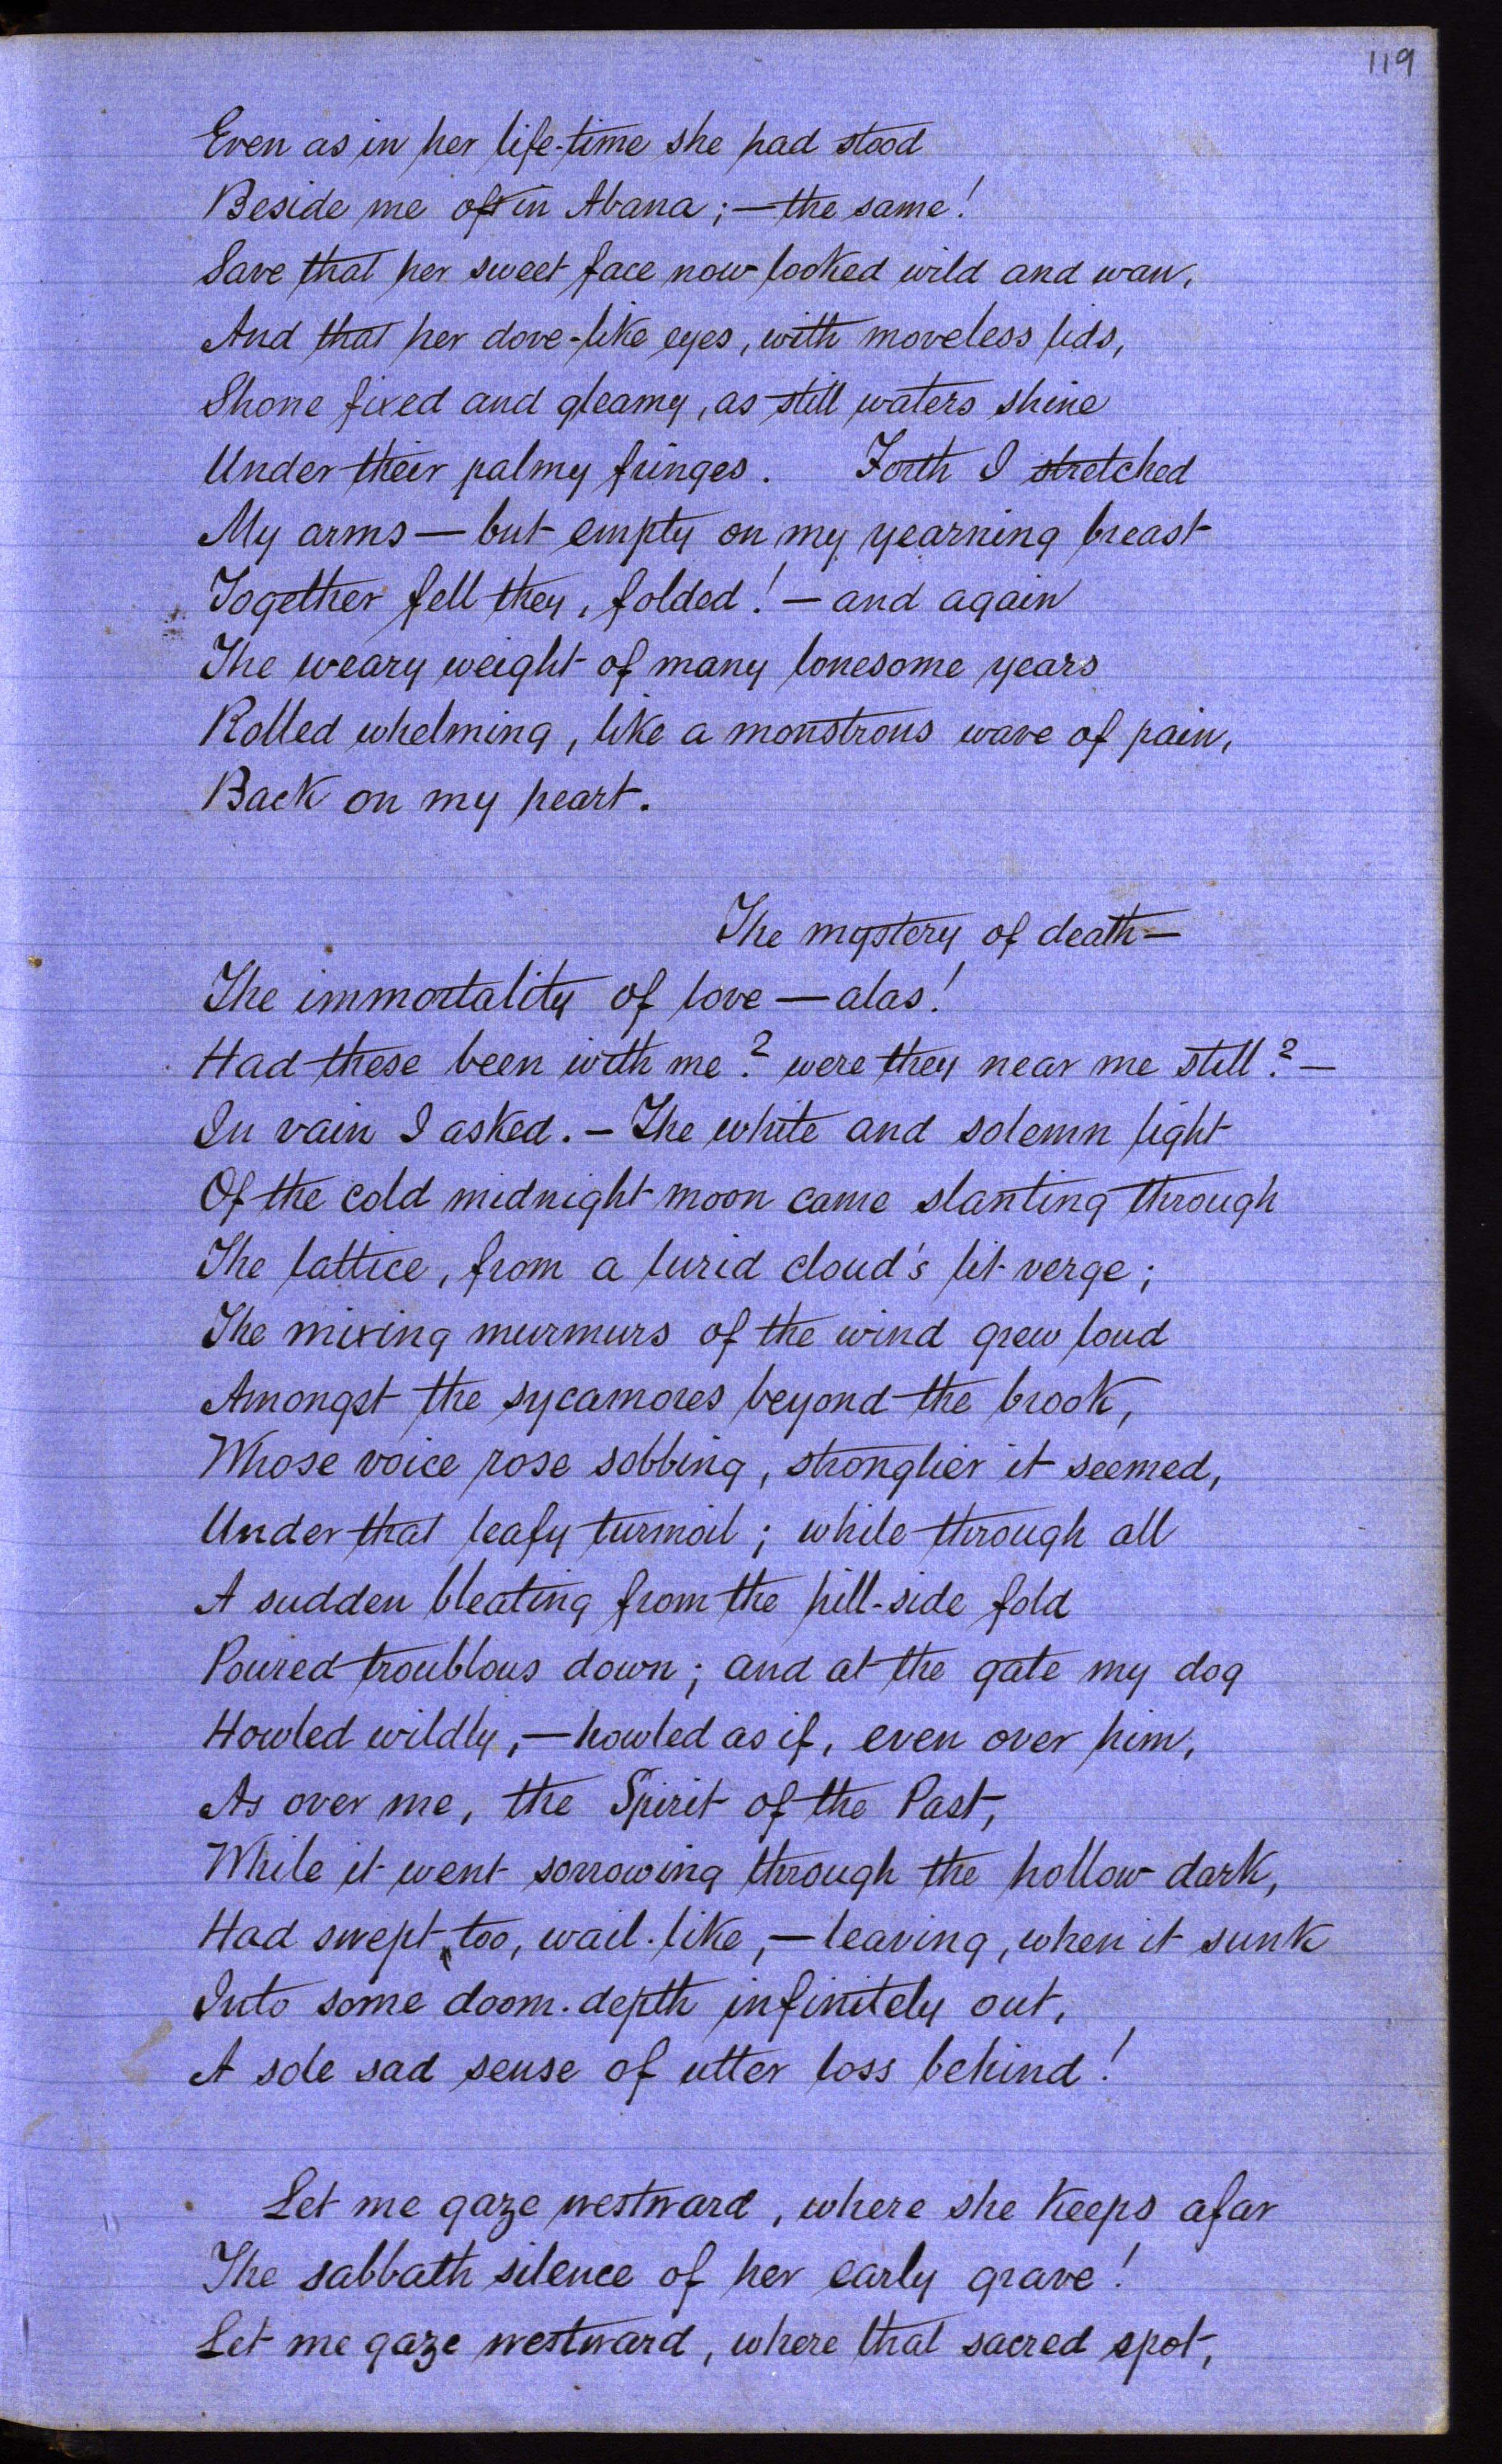 119
Even as in her life-time she had stood
Beside me oft in Abana; — the same!
Save that her sweet face now looked wild and wan,
And that her dove-like eyes, with moveless lids,
Shone fixed and gleamy, as still waters shine
Under their palmy fringes. Forth I stretched
My arms — but empty on my yearning breast
Together fell they, folded! — and again
The weary weight of many lonesome years
Rolled whelming, like a monstrous wave of pain,
Back on my heart.
The mystery of death —
The immortality of love — alas!
Had these been with me? were they near me still? —
In vain I asked. — The white and solemn light
Of the cold midnight moon came slanting through
The lattice, from a lurid cloud's lit verge;
The mixing murmurs of the wind grew loud
Amongst the sycamores beyond the brook,
Whose voice rose sobbing, stronglier it seemed,
Under that leafy turmoil; while through all
A sudden bleating from the hill-side fold
Poured troublous down; and at the gate my dog
Howled wildly, — howled as if, even over him,
As over me, the Spirit of the Past,
While it went sorrowing through the hollow dark,
Had swept, too, wail-like, — leaving, when it sunk
Into some doom-depth infinitely out,
A sole sad sense of utter loss behind!
Let me gaze westward, where she keeps afar
The sabbath silence of her early grave!
Let me gaze westward, where that sacred spot,